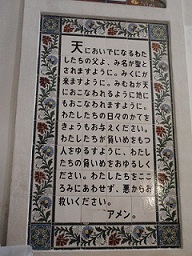 天においでになるわた
したちの父よ、み名が聖と
されますように。みくにが
来ますように。みむねが天
におこなわれるように地に
もおこなわれますように。
わたしたちの日々のかてを
きょうもお与えください。
わたしたちが負いめをもつ
人をゆるすように、わたし
たちの負いめをおゆるしく
ださい。わたしたちをここ
ろみにあわせず、悪からお
救いください。
アメン。